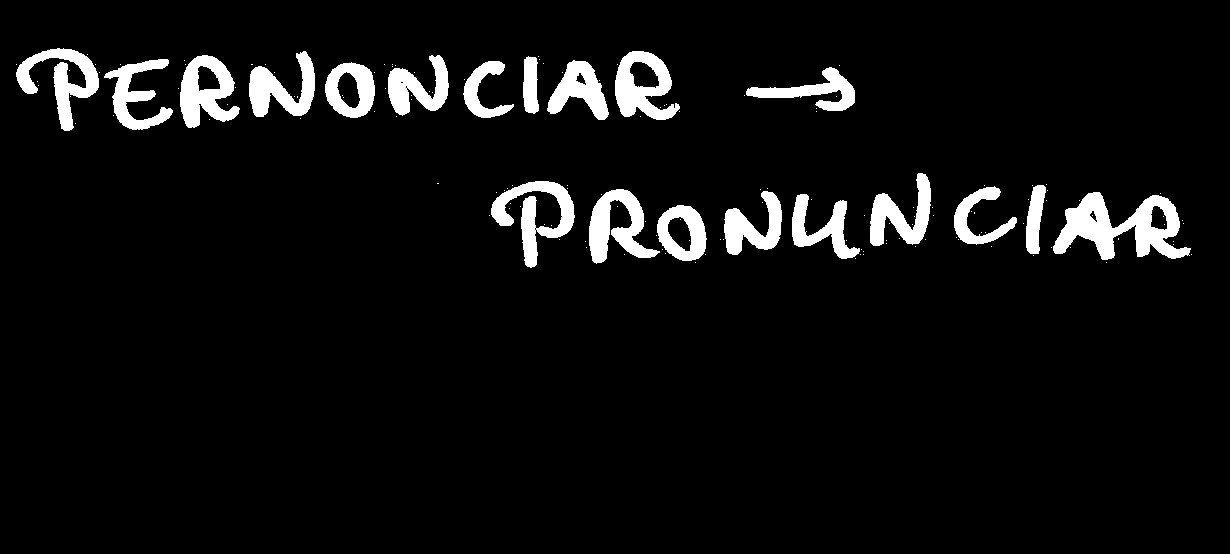 PERNONCIAR →
PRONUNCIAR